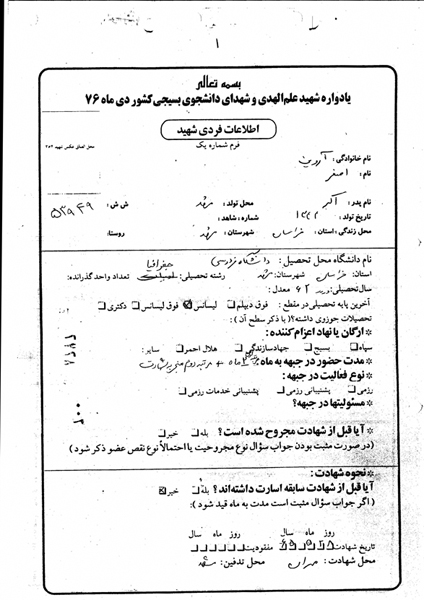 ۱
بسمه تعالی
یادواره شهید علم‌الهدی و شهدای دانشجوی بسیجی کشور دی ماه ۷۶
اطلاعات فردی شهید
فرم شماره یک
محل الصاق عکس شهید ۴×۳
نام خانوادگی:
نام : اصغر
نام پدر: اکبر محل تولد: مشهد ش ش: ۵۳۹۴۹
تاریخ تولد : شماره شاهد:
محل زندگی: استان: خراسان شهرستان: مشهد روستا:
نام دانشگاه محل تحصیل: دانشگاه فردوسی
استان: خراسان شهرستان: مشهد رشته تحصیلی: جغرافیا تعداد واحد گذرانده:
سال تحصیلی: ۶۲ معدل:
آخرین پایه تحصیلی در مقطع : فوق دیپلم لیسانس فوق لیسانس دکتری
تحصیلات حوزوی داشته؟( با ذکر سطح آن ):
*ارگان یا نهاد اعزام کننده:
سپاه بسیج جهادسازندگی هلال احمر سایر:
*مدت حضور در جبهه به ماه: ماه + مرتبه دوم منجر به شهادت
*نوع فعالیت در جبهه:
رزمی پشتیبانی رزمی پشتیبانی خدمات رزمی
*مسئولیتها در جبهه؟
*آیا قبل از شهادت مجروح شده است؟ بله خیر
(در صورت مثبت بودن جواب سؤال نوع مجروحیت یا احتمالاً نوع نقص عضو ذکر شود)
*نحوه شهادت:
آیا قبل از شهادت سابقه اسارت داشته‌اند؟ بله خیر
( اگر جواب سؤال مثبت است مدت به ماه قید شود ):
روز ماه سال روز ماه سال
تاریخ شهادت مفقودیت
محل شهادت : مهران محل تدفین: مشهد